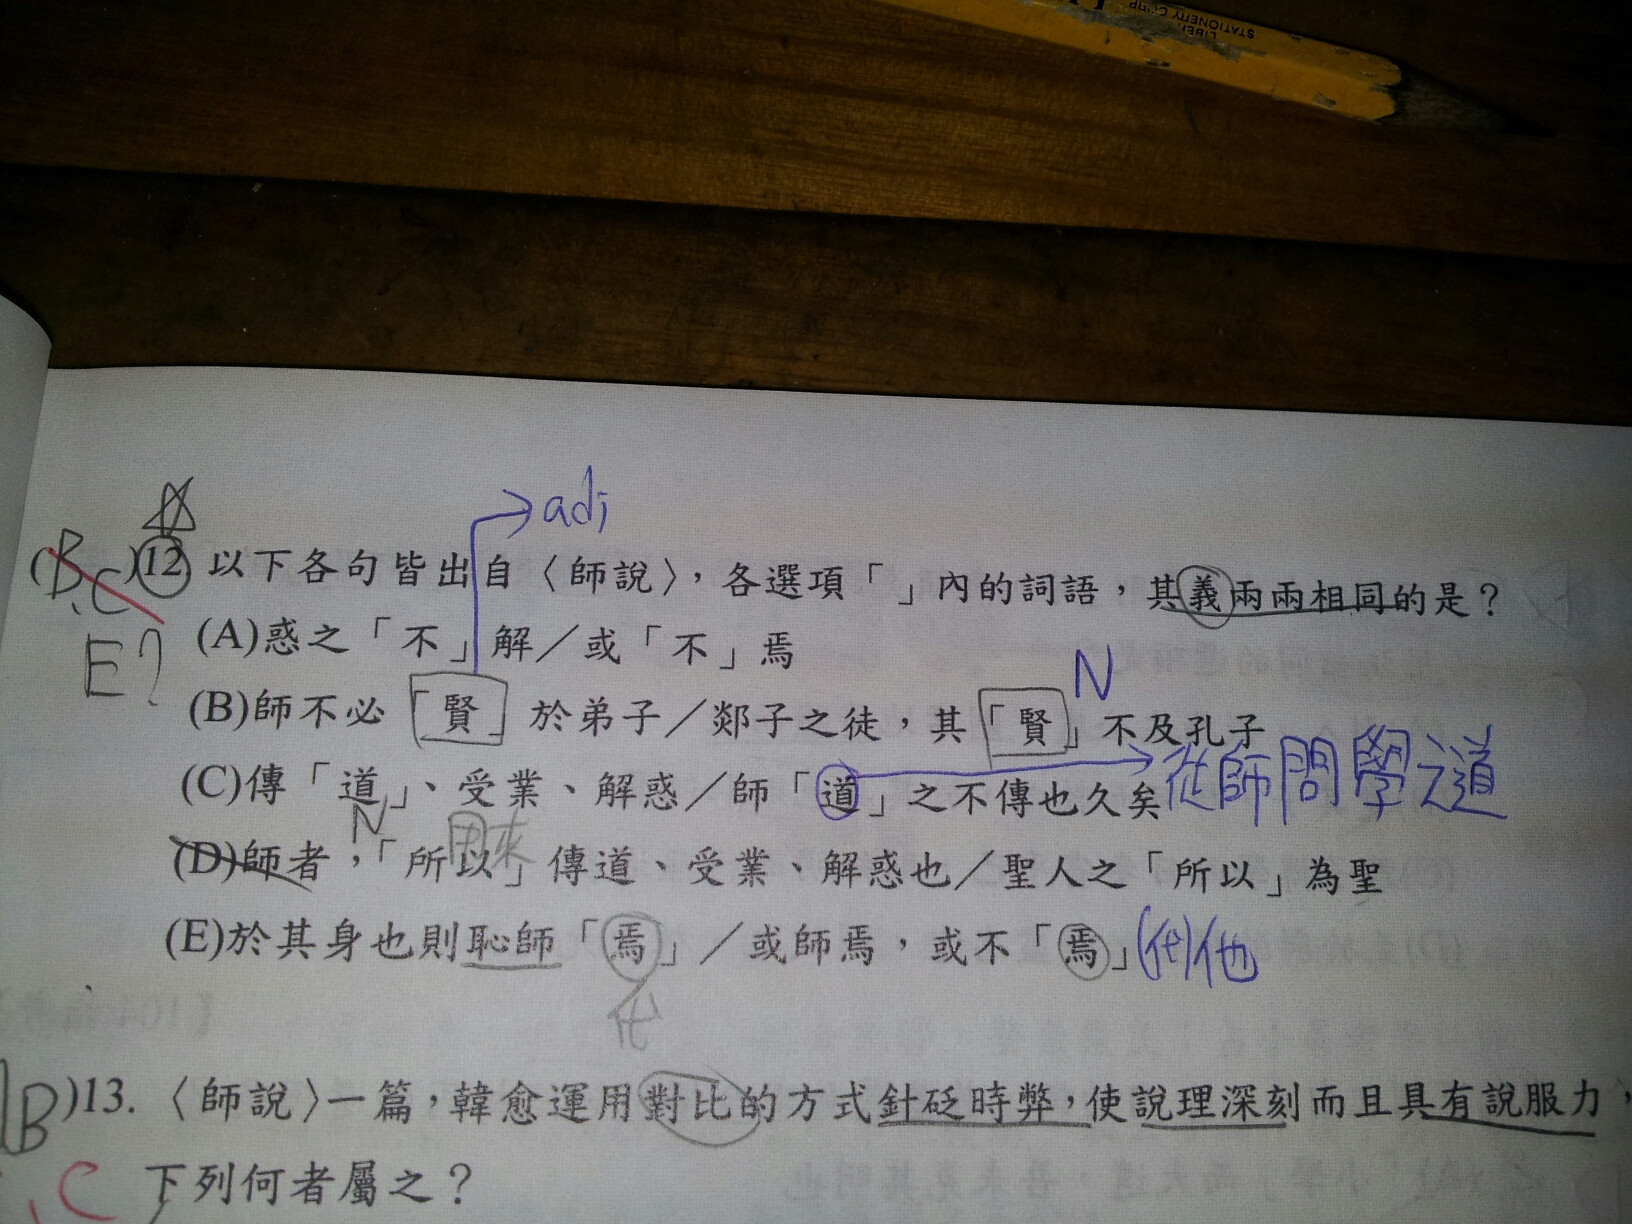 LIBER
STATIONERY C
adj
(B、C)12 以下各句皆出自〈師說〉，各選項「」內的詞語，其義兩兩相同的是？
E？
(A)惑之「不」解／或「不」焉
N
(B)師不必「賢」於弟子／郯子之徒，其「賢」不及孔子
(C)傳「道」、受業、解惑／師「道」之不傳也久矣 從師問學之道
N 用來
(D)師者，「所以」傳道、受業、解惑也／聖人之「所以」為聖
(E)於其身也則恥師「焉」／或師焉，或不「焉」(代)他
代
B)13.〈師說〉一篇，韓愈運用對比的方式針砭時弊，使說理深刻而且具有說服力，
、C 下列何者屬之？